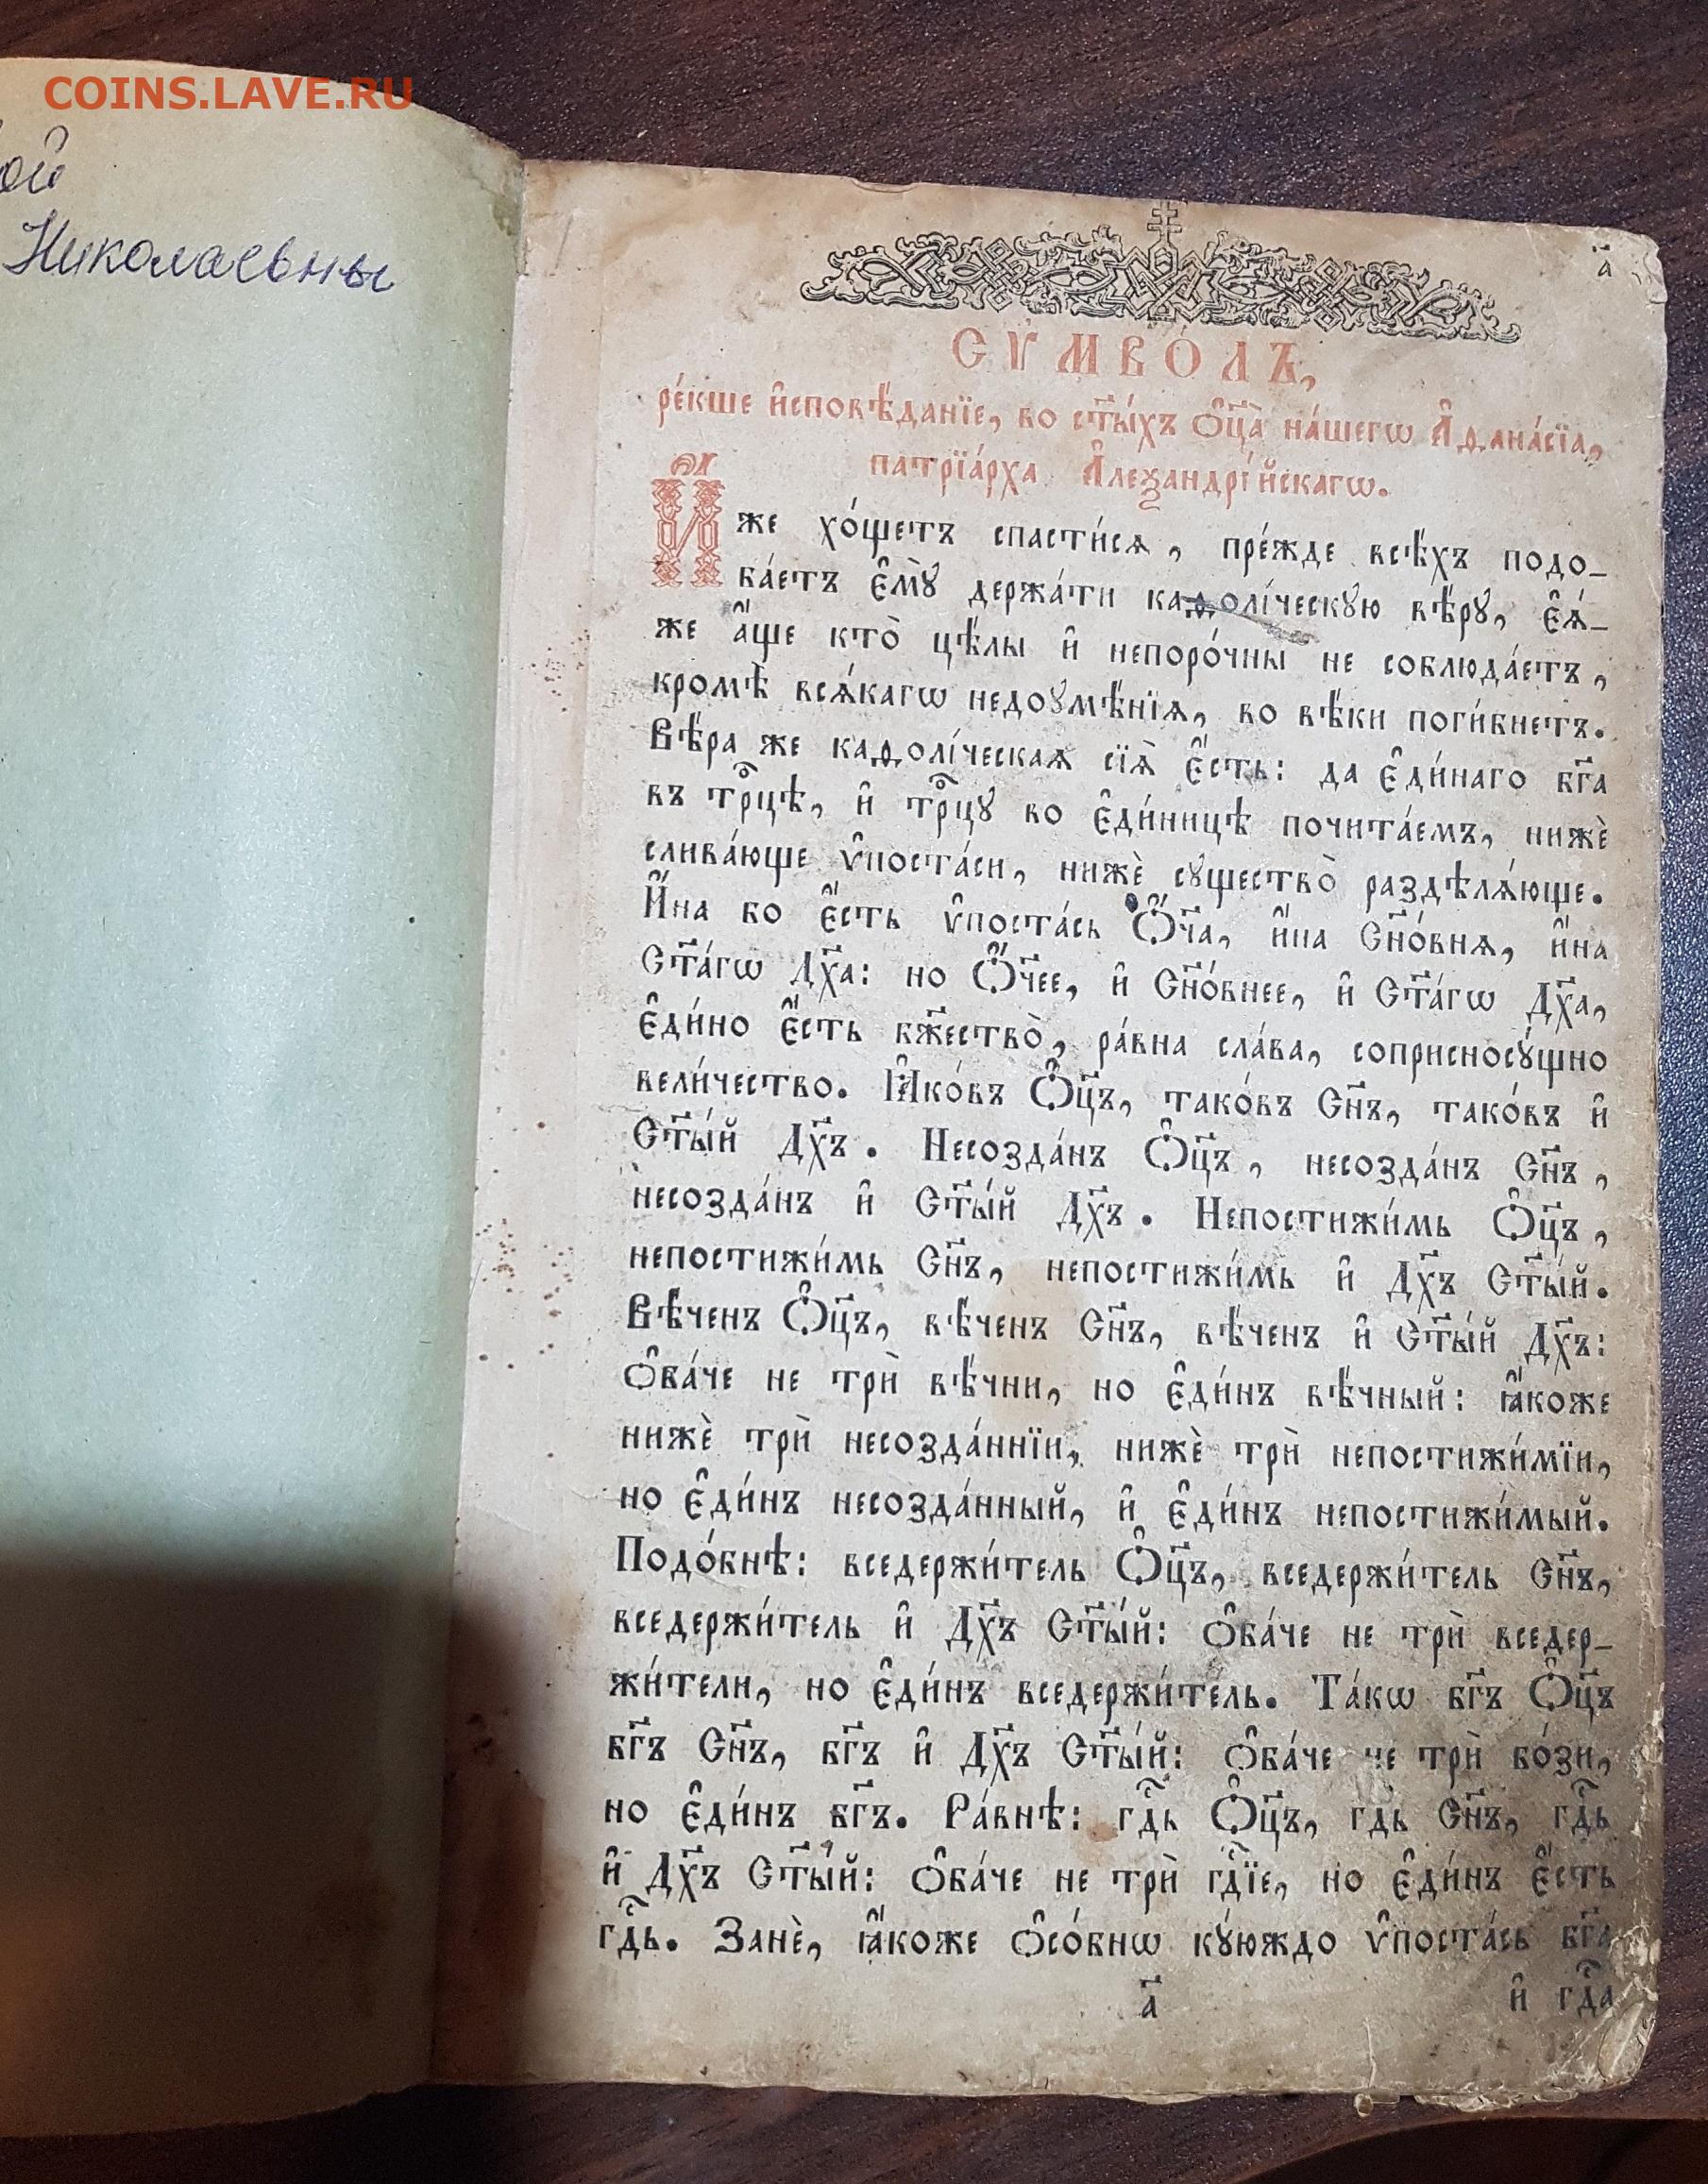 COINS.LAVE.RU
ой
Николаевны
а҃
СѴМВО́ЛЪ,
ре́кше и҆сповѣ́данїе, во ст҃ы́хъ ѻ҆ц҃а̀ на́шегѡ А҆ѳана́сїа,
патрїа́рха А҆леѯандрі́йскагѡ.
И҆́же хо́щетъ спасти́сѧ, пре́жде всѣ́хъ подо-
ба́етъ є҆мꙋ̀ держа́ти каѳолі́ческꙋю вѣ́рꙋ, є҆ѧ́-
же а҆́ще кто̀ цѣ́лы и҆ непоро́чны не соблюда́етъ,
кромѣ̀ всѧ́кагѡ недоꙋмѣ́нїѧ, во вѣ́ки поги́бнетъ.
Вѣ́ра же каѳолі́ческаѧ сїѧ̀ є҆́сть: да є҆ди́наго бг҃а
въ трⷪ҇цѣ, и҆ трⷪ҇цꙋ во є҆ди́ницѣ почита́емъ, нижѐ
слива́юще ѵ҆поста́си, нижѐ сꙋщество̀ раздѣлѧ́юще.
И҆́на бо є҆́сть ѵ҆поста́сь Ѻ҆́ч҃а, и҆́на Сн҃о́внѧ, и҆́на
Ст҃а́гѡ Дх҃а: но Ѻ҆́ч҃ее, и҆ Сн҃о́внее, и҆ Ст҃а́гѡ Дх҃а,
є҆ди́но є҆́сть бж҃ество̀, ра́вна сла́ва, соприсносꙋ́щно
вели́чество. Ꙗ҆ко́въ Ѻ҆ц҃ъ, тако́въ Сн҃ъ, тако́въ и҆
Ст҃ы́й Дх҃ъ. Несозда́нъ Ѻ҆ц҃ъ, несозда́нъ Сн҃ъ,
несозда́нъ и҆ Ст҃ы́й Дх҃ъ. Непостижи́мь Ѻ҆ц҃ъ,
непостижи́мь Сн҃ъ, непостижи́мь и҆ Дх҃ъ Ст҃ы́й.
Вѣ́ченъ Ѻ҆ц҃ъ, вѣ́ченъ Сн҃ъ, вѣ́ченъ и҆ Ст҃ы́й Дх҃ъ:
ѻ҆ба́че не трѝ вѣ́чни, но є҆ди́нъ вѣ́чный: ꙗ҆́коже
нижѐ трѝ несозда́ннїи, нижѐ трѝ непостижи́мїи,
но є҆ди́нъ несозда́нный, и҆ є҆ди́нъ непостижи́мый.
Подо́бнѣ: вседержи́тель Ѻ҆ц҃ъ, вседержи́тель Сн҃ъ,
вседержи́тель и҆ Дх҃ъ Ст҃ы́й: ѻ҆ба́че не трѝ вседер-
жи́тели, но є҆ди́нъ вседержи́тель. Та́кѡ бг҃ъ Ѻ҆ц҃ъ
бг҃ъ Сн҃ъ, бг҃ъ и҆ Дх҃ъ Ст҃ы́й: ѻ҆ба́че не трѝ бо́зи,
но є҆ди́нъ бг҃ъ. Ра́внѣ: гдⷭ҇ь Ѻ҆ц҃ъ, гдⷭ҇ь Сн҃ъ, гдⷭ҇ь
и҆ Дх҃ъ Ст҃ы́й: ѻ҆ба́че не трѝ гдⷭ҇їе, но є҆ди́нъ є҆́сть
гдⷭ҇ь. Занѐ, ꙗ҆́коже ѻ҆со́бнѡ кꙋ́юждо ѵ҆поста́сь бг҃а
а҃ и҆ гдⷭ҇а